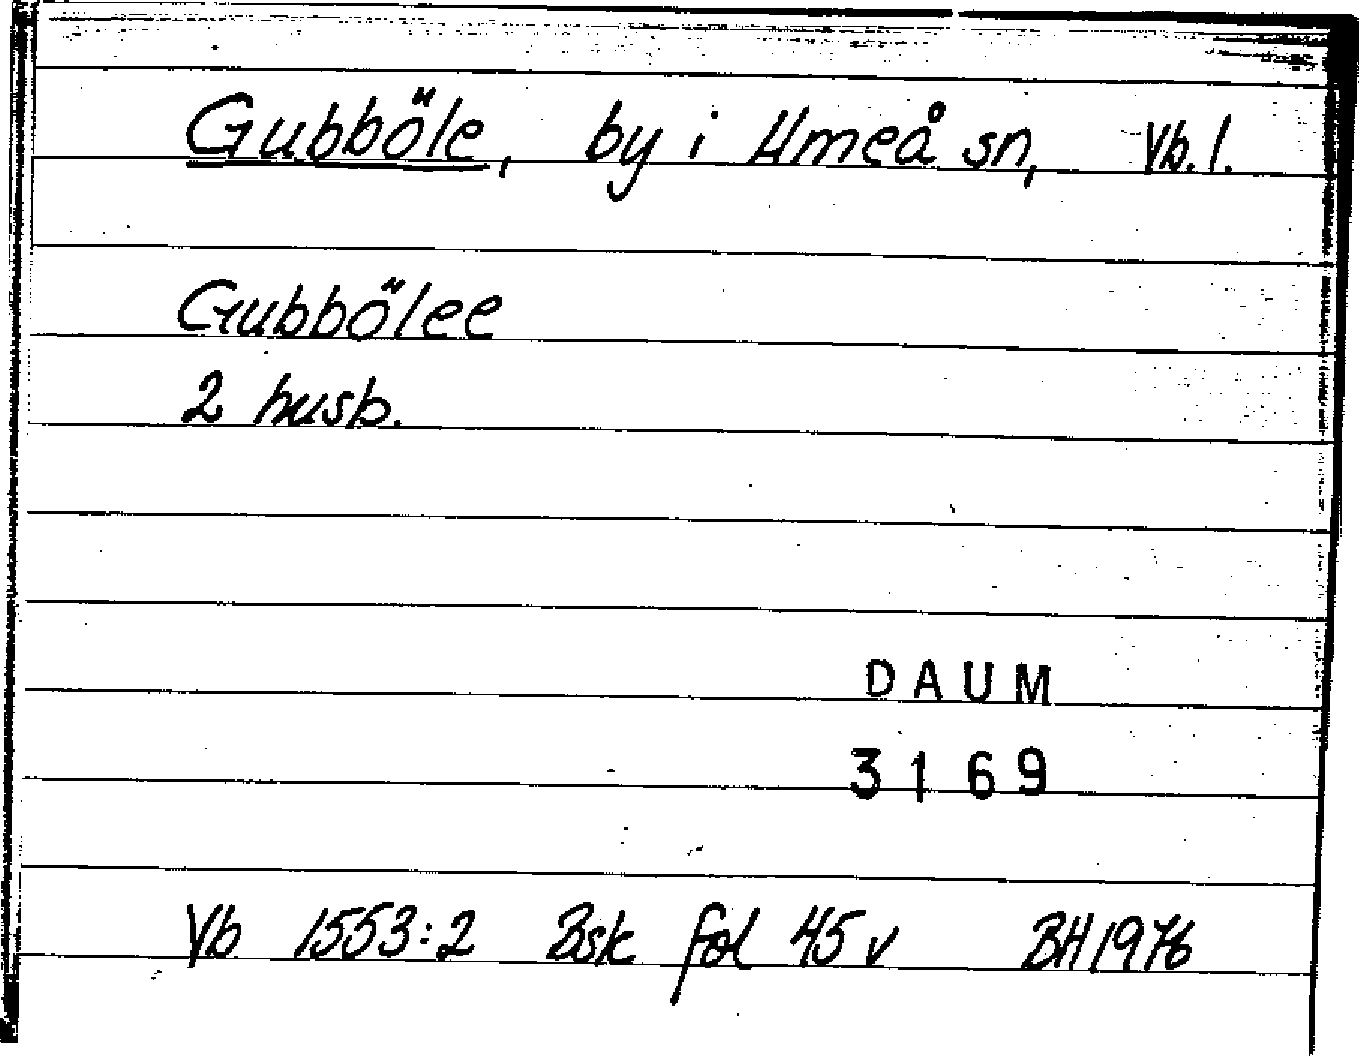 Gubböle, by i Umeå sn, Vb. l.
Gubbölee
2 husb.
DAUM
3169
Vb 1553:2 Bsk fol 45 v BH 1976